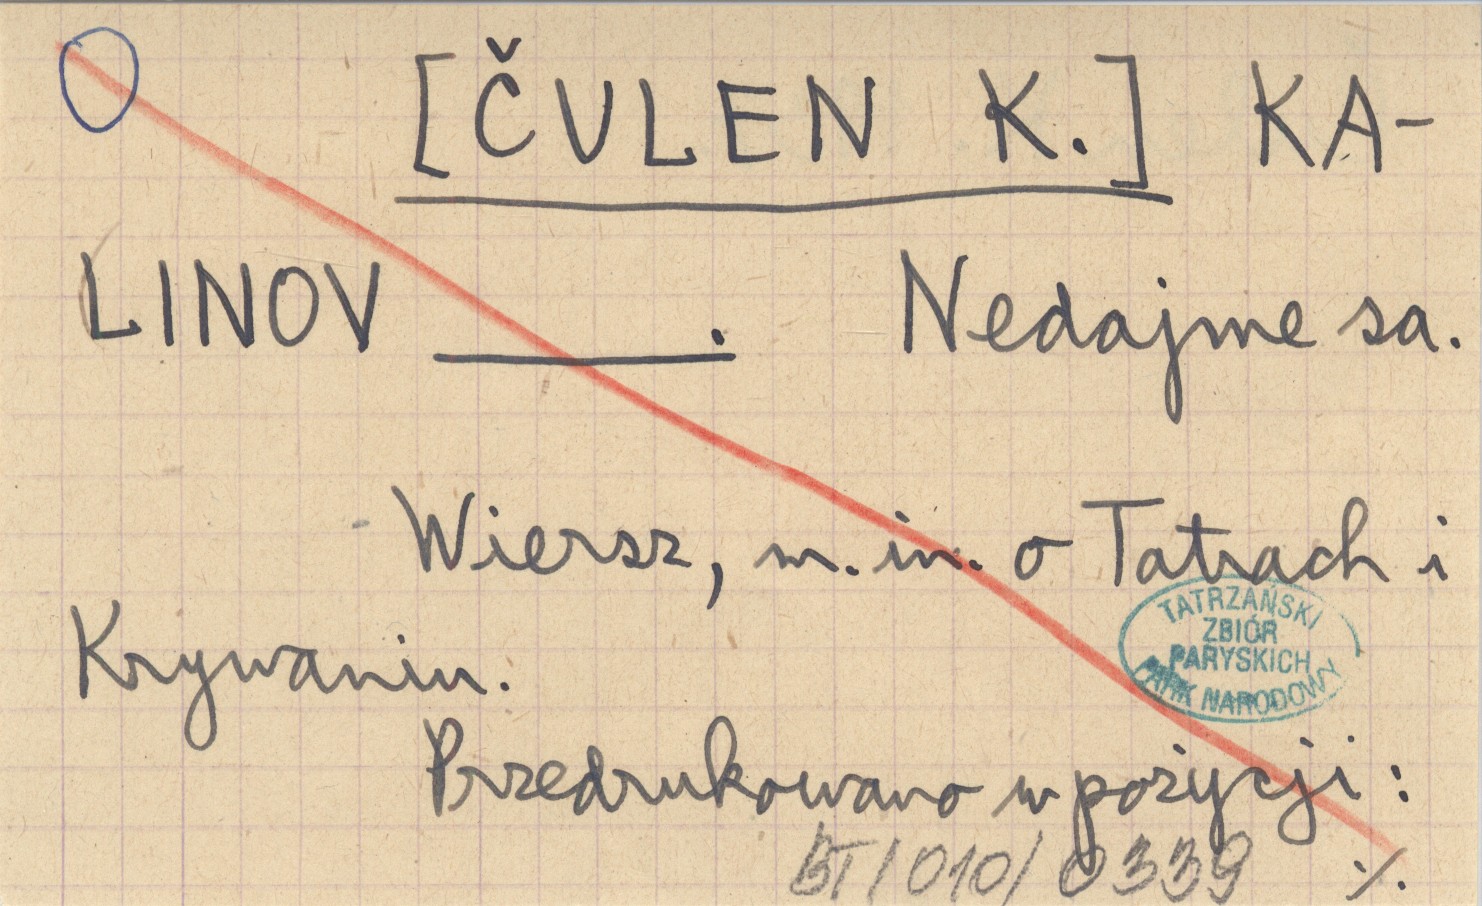 [ČULEN K.] KA-
LINOV ______. Nedajme sa.
Wiersz, m.in. o Tatrach i
Krywaniu.
TATRZAŃSKI
ZBIÓR
PARYSKICH
PARK NARODOWY
Przedrukowano w pozycji:
BT/010/0339 ./.